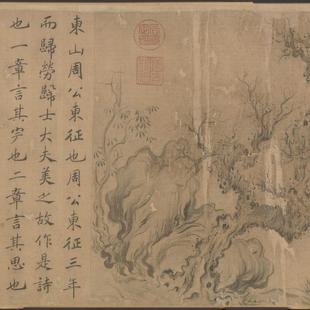 東山周公東征也周公東征三年
而歸勞歸士大夫美之故作是詩
也一章言其完也二章言其思也